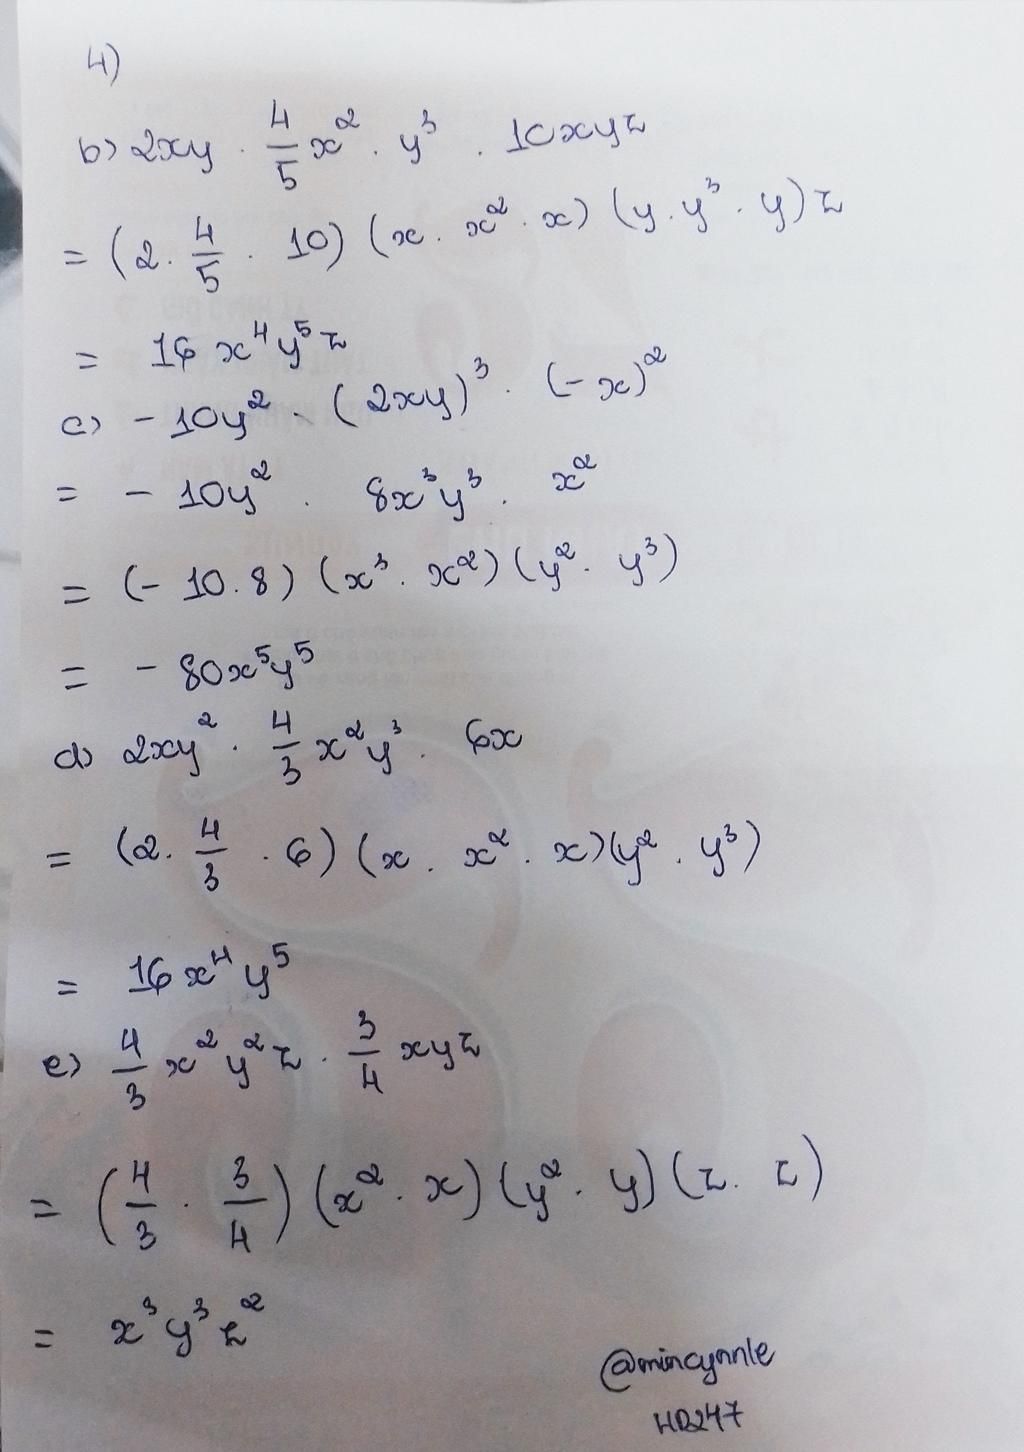 4)
b) 2xy . 4/5 x² . y³ . 10xyz
= (2 . 4/5 . 10) (x . x² . x) (y . y³ . y) z
= 16 x⁴y⁵z
c) - 10y² . (2xy)³ . (-x)²
= - 10y² . 8x³y³ . x²
= (- 10 . 8) (x³ . x²) (y² . y³)
= - 80x⁵y⁵
d) 2xy² . 4/3 x²y³ . 6x
= (2 . 4/3 . 6) (x . x² . x)(y² . y³)
= 16 x⁴ y⁵
e) 4/3 x² y² z . 3/4 xyz
= (4/3 . 3/4) (x² . x) (y² . y) (z . z)
= x³ y³ z²
@mincynnle
HD247